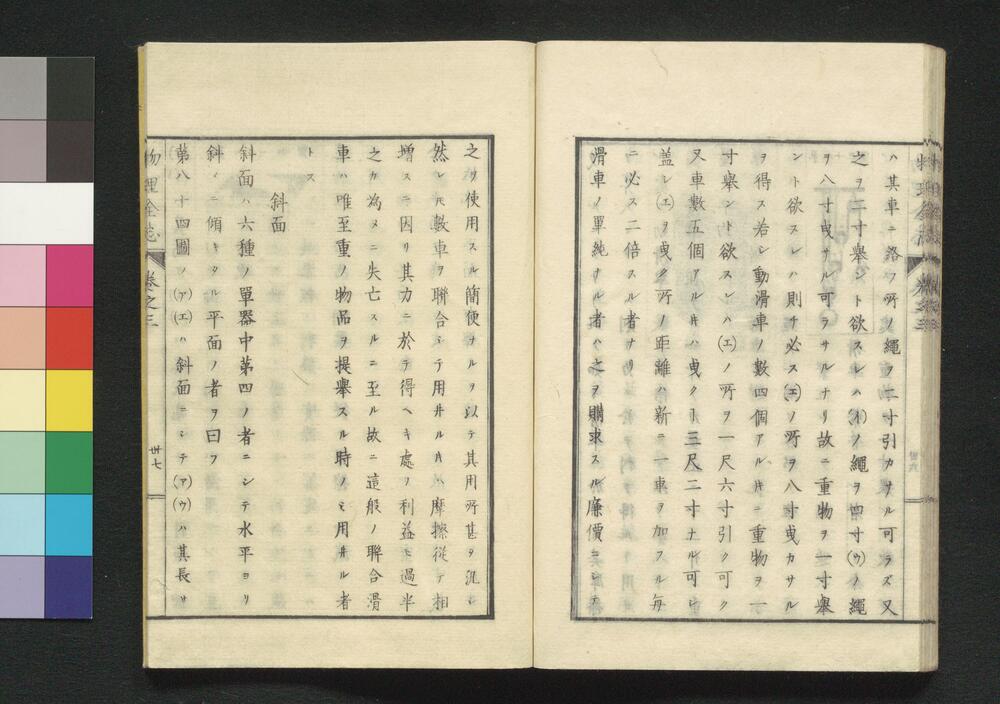 ハ其車ニ洛フ所ノ繩ヲ二寸引カサル可ラズ又
之ヲ二寸舉ント欲スレハ(イ)ノ繩ヲ四寸(ウ)ノ繩
ヲ八寸曳サル可ラサルナリ故ニ重物ヲ一寸舉
ント欲スレハ則チ必ス(エ)ノ所ヲ八寸曳カサル
ヲ得ス若シ動滑車ノ數四個アルキニ重物ヲ一
寸舉ント欲スレハ(エ)ノ所ヲ一尺六寸引ク可ク
又車數五個アルキハ曳クヿ三尺二寸ナル可シ
盖シ(エ)ヲ曳ク所ノ距離ハ新ニ一車ヲ加フル毎
ニ必ス二倍スル者ナリ
滑車ノ單純ナル者ハ之ヲ購求スル廉價ニシテ
之ヲ使用スル簡便ナルヲ以テ其用所甚タ混シ
然レ𪜈數車ヲ聯合シテ用井ルキハ摩擦從テ相
増スニ因リ其力ニ於テ得ヘキ處ノ利益ヒ過半
之カ為メニ失亡スルニ至ル故ニ這般ノ聯合滑
車ハ唯至重ノ物品ヲ提舉スル時ノミ用井ル者
トス
斜面
斜面ハ六種ノ單器中第四ノ者ニシテ水平ヨリ
斜メニ傾キタル平面ノ者ヲ曰フ
第八十四圖ノ(ア)(エ)ハ斜面ニシテ(ア)(ウ)ハ其長サ
物理全志
卷之三
卅七